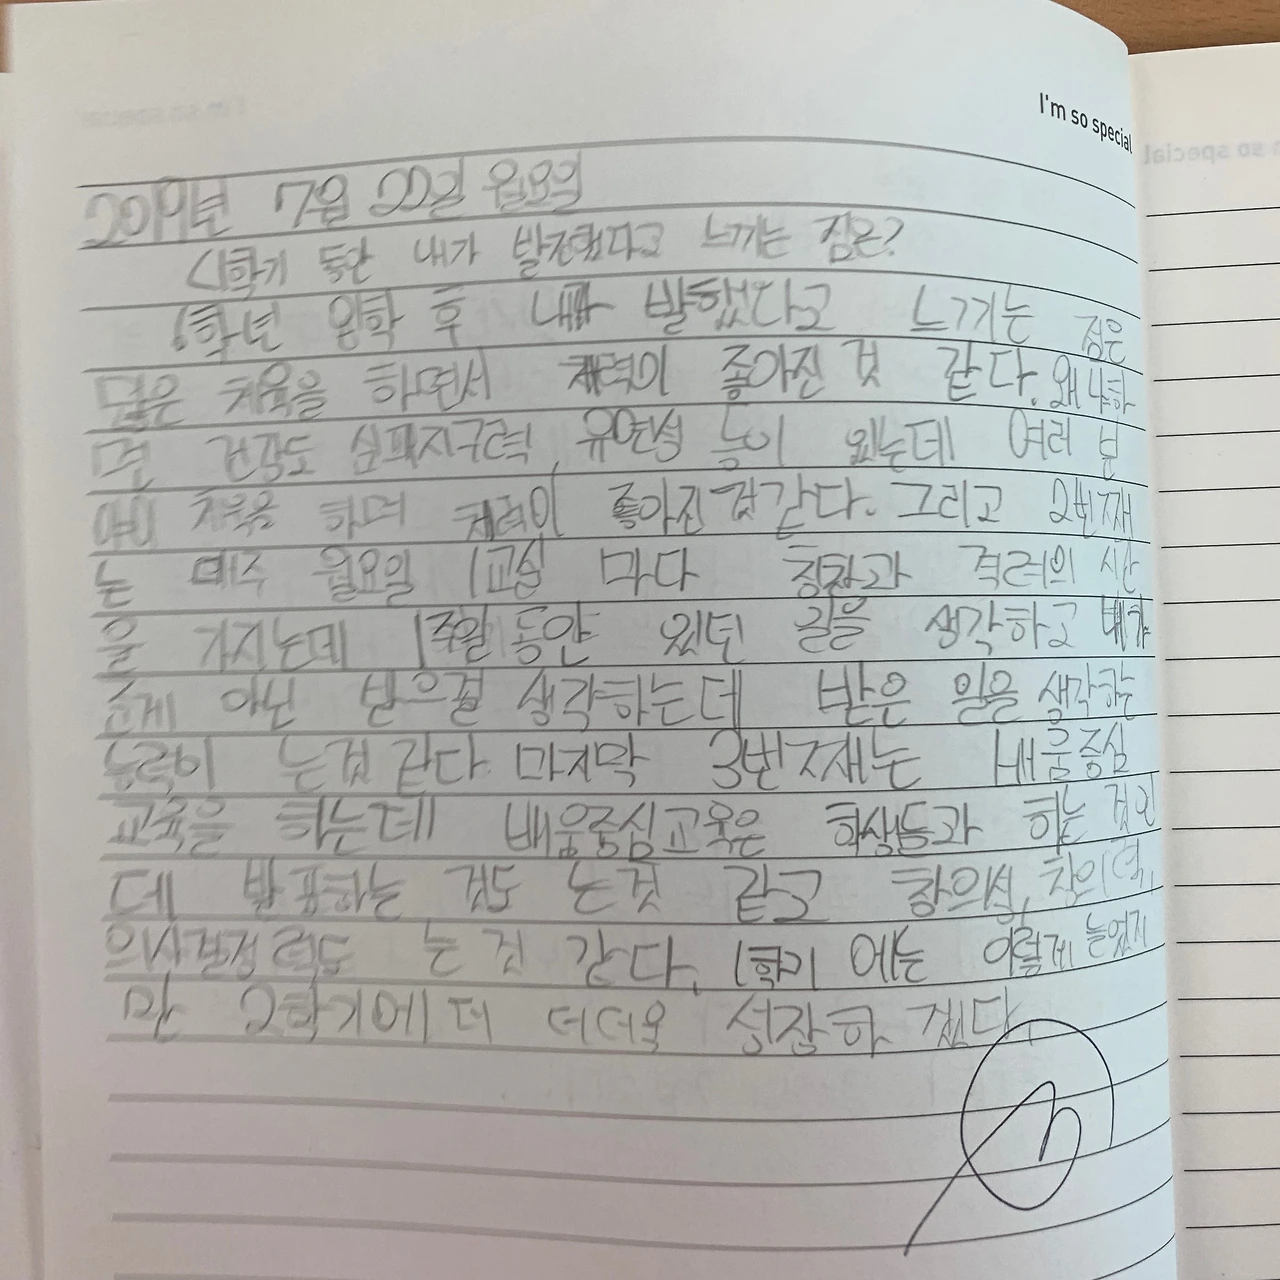 I'm so special
2019년 7월 22일 월요일
<1학기 동안 내가 발전했다고 느끼는 점은?
6학년 입학 후 내가 발했다고 느끼는 점은
많은 체육을 하면서 체력이 좋아진 것 같다. 왜냐하
면 건강도 심폐지구력, 유연성 등이 있는데 여러 분
야의 체육을 하며 체력이 좋아진 것 같다. 그리고 2번째
는 매주 월요일 1교실 마다 칭찬과 격려의 시간
을 가지는데 1주일 동안 있던 일을 생각하고 내가
준게 아닌 받은걸 생각하는데 받은 일을 생각하는
능력이 는것 같다 마지막 3번째는 배움중심
교육을 하는데 배움중심교육은 학생들과 하는 것인
데 발표하는 것도 는것 같고 창의성, 창의력,
의사결정력도 는 것 같다. 1학기 에는 이렇게 늘었지
만 2학기에 더 더더욱 성장하 겠다.